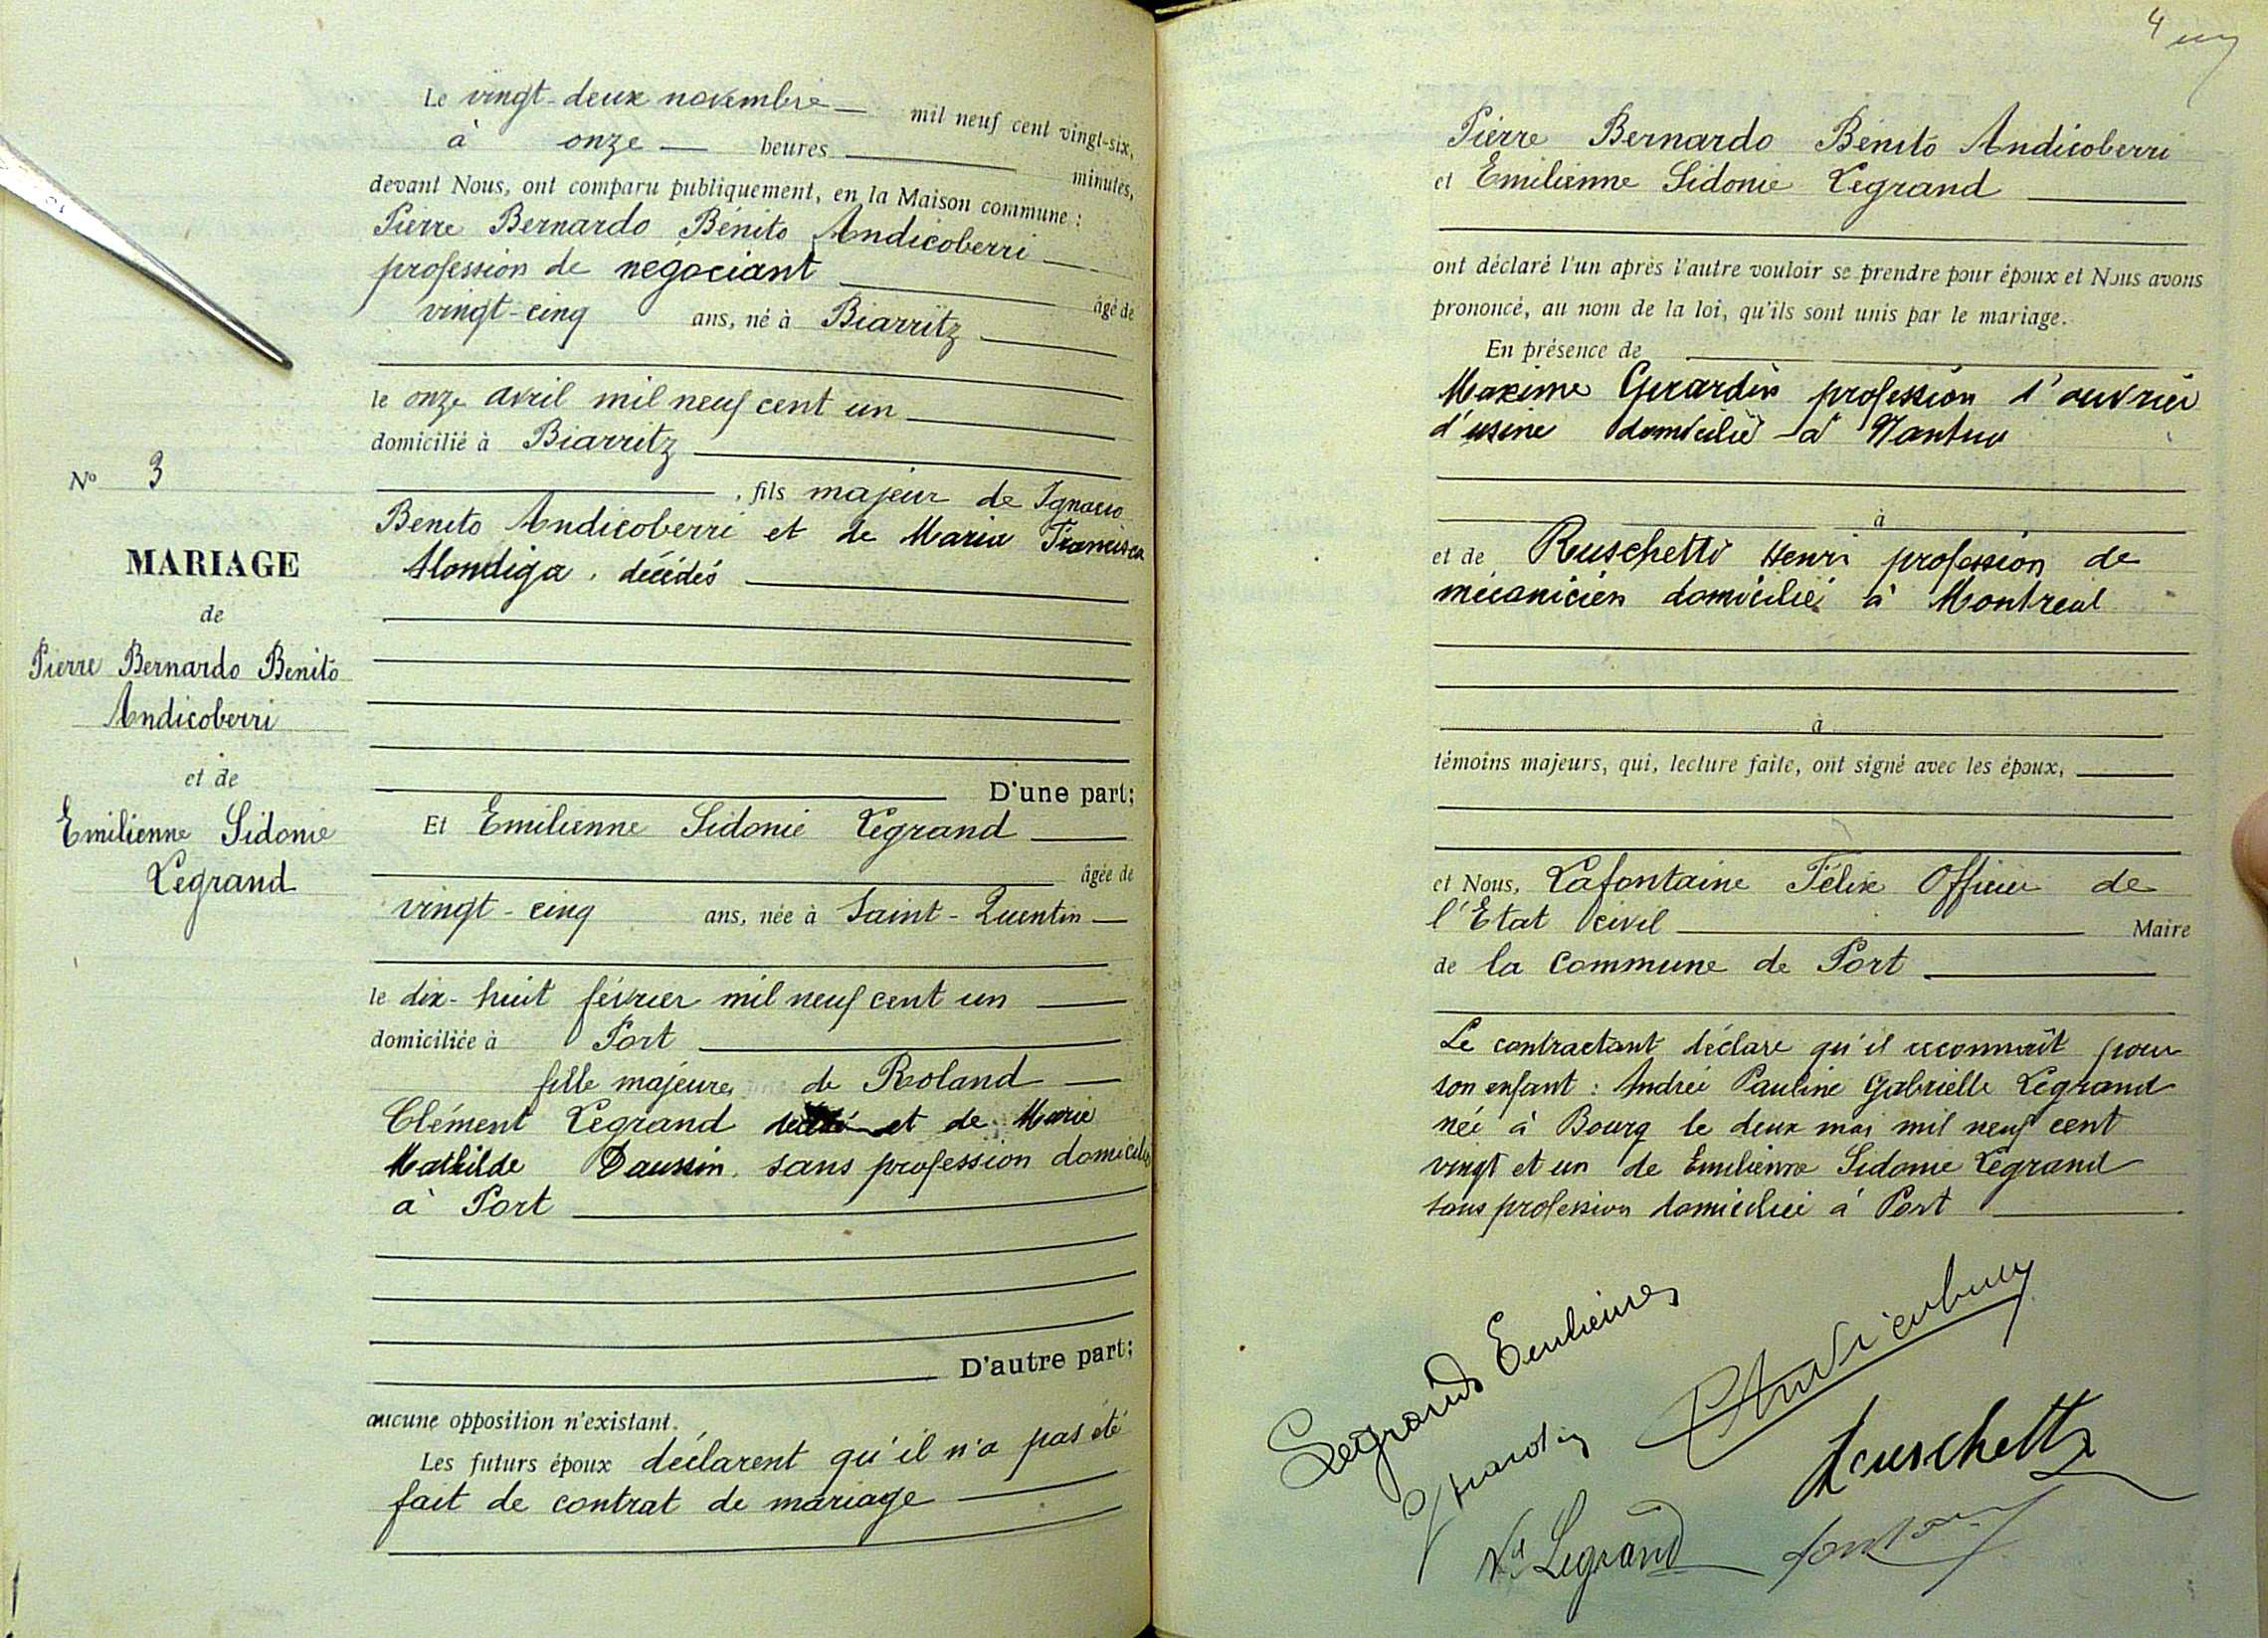 Le vingt-deux novembre mil neuf cent vingt-six,
à onze heures minutes,
devant Nous, ont comparu publiquement, en la Maison commune :
Pierre Bernardo Bénito Andicoberri
profession de negociant âgé de
vingt-cinq ans, né à Biarritz
le onze avril mil neuf cent un
domicilié à Biarritz
, fils majeur de Ignacio
Benito Andicoberri et de Maria Francisca
Alondiga, décédés
D'une part;
Et Emilienne Sidonie Legrand
âgée de
vingt-cinq ans, née à Saint-Quentin
le dix-huit février mil neuf cent un
domiciliée à Port
fille majeure de Roland
Clément Legrand et de Marie
Mathilde Daussin, sans profession domiciliée
à Port
D'autre part;
aucune opposition n'existant.
Les futurs époux déclarent qu'il n'a pas été
fait de contrat de mariage
No 3
MARIAGE
de
Pierre Bernardo Benito
Andicoberri
et de
Emilienne Sidonie
Legrand
4
Pierre Bernardo Bénito Andicoberri
et Emilienne Sidonie Legrand
ont déclaré l'un après l'autre vouloir se prendre pour époux et Nous avons
prononcé, au nom de la loi, qu'ils sont unis par le mariage.
En présence de
Maxime Girardin profession d'ouvrier
d'usine domicilié à Nantua
à
et de Ruschetti Henri profession de
mécanicien domicilié à Montreal
à
témoins majeurs, qui, lecture faite, ont signé avec les époux,
et Nous, Lafontaine Félix Officier de
l'Etat civil Maire
de la commune de Port
Le contractant déclare qu'il reconnaît pour
son enfant : Andrée Pauline Gabrielle Legrand
née à Bourg le deux mai mil neuf cent
vingt et un de Emilienne Sidonie Legrand
sans profession domiciliée à Port
Legrand Emilienne
Andicoberry
Girardin
Ruschetti
Vve Legrand